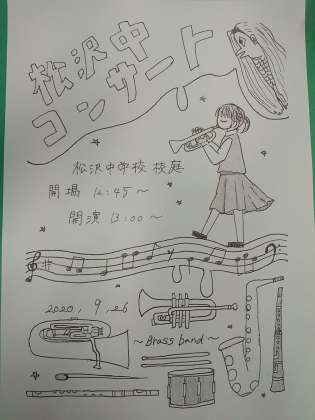 松沢中
コンサート
松沢中学校 校庭
開場 12:45～
開演 13:00～
2020, 9, 26
～Brass band～